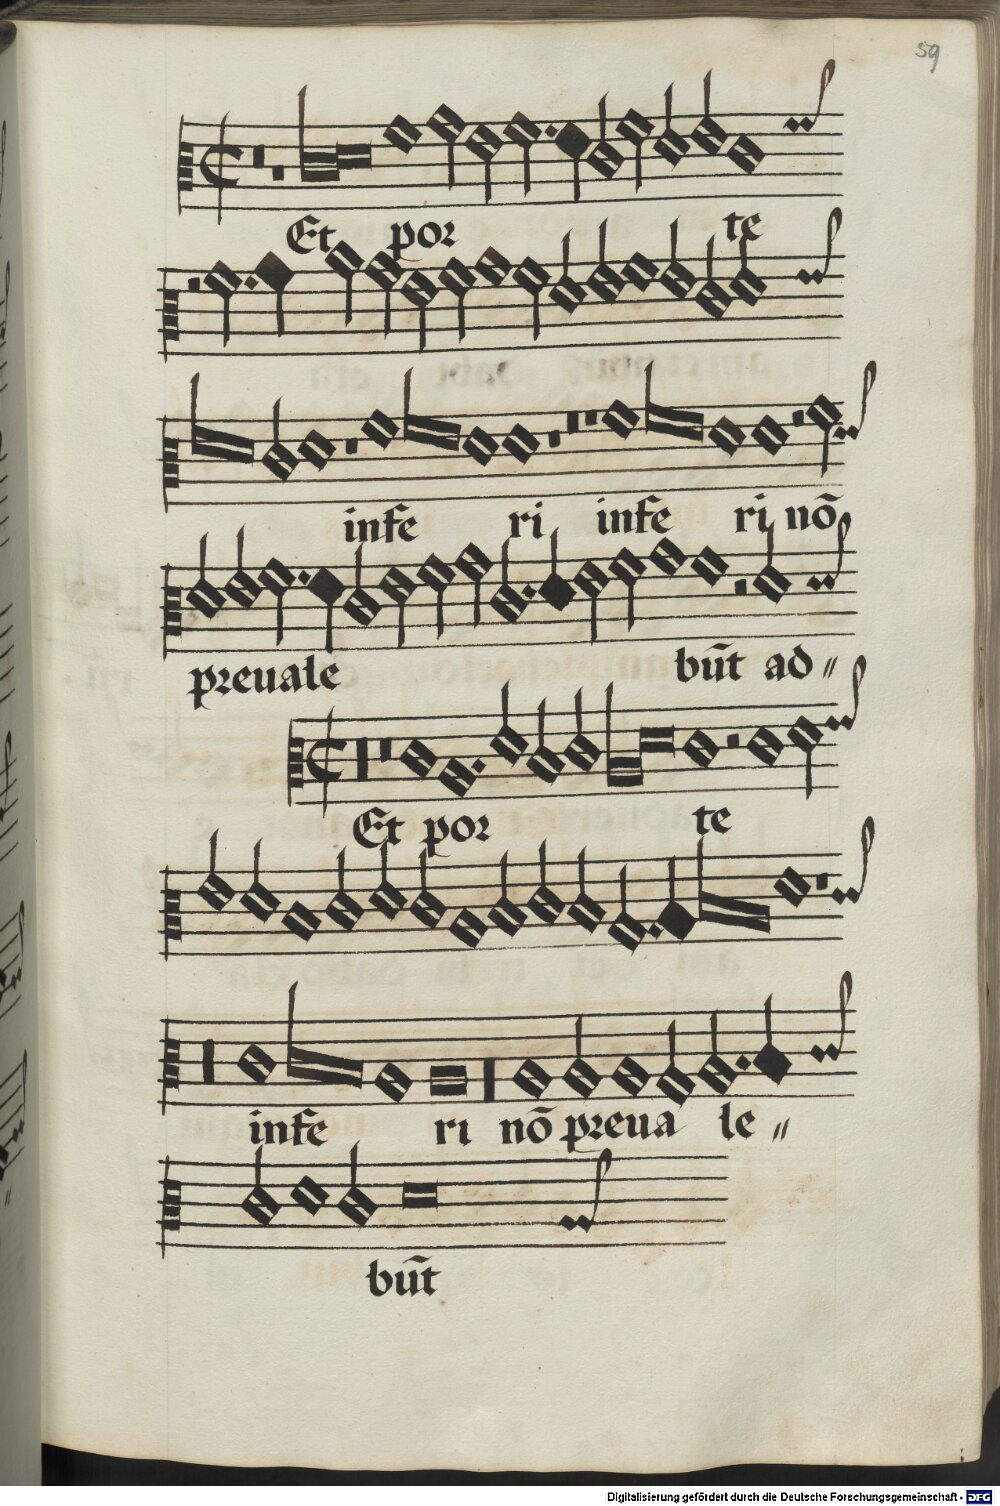 59
Et por te
infe ri infe ri nõ
preuale bũt ad〃
Et por te
infe ri nõ preua le〃
bũt
Digitalisierung gefördert durch die Deutsche Forschungsgemeinschaft - DFG